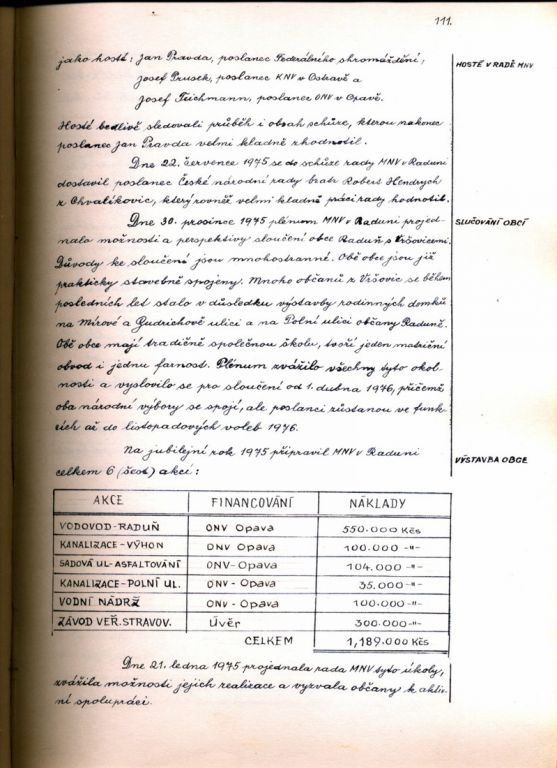 111.
jako hosté: Jan Pravda, poslanec Federálního shromáždění,
HOSTÉ V RADĚ MNV
Josef Prusek, poslanec KNV v Ostravě a
Josef Teichmann, poslanec ONV v Opavě.
Hosté bedlivě sledovali průběh i obsah schůze, kterou nakonec
poslanec Jan Pravda velmi kladně zhodnotil.
Dne 22. července 1975 se do schůze rady MNV v Raduni
dostavil poslanec České národní rady bratr Robert Hendrych
z Chvalíkovic, který rovněž velmi kladně práci rady hodnotil.
Dne 30. prosince 1975 plénum MNV v Raduni projed-
SLUČOVÁNÍ OBCÍ
nalo možnosti a perspektivy sloučení obce Raduň s Vršovicemi.
Důvody ke sloučení jsou mnohostranné. Obě obce jsou již
prakticky stavebně spojeny. Mnoho občanů z Vršovic se během
posledních let stalo v důsledku výstavby rodinných domků
na Mírové a Gudrichově ulici a na Polní ulici občany Raduně.
Obě obce mají tradičně společnou školu, tvoří jeden matriční
obvod i jednu farnost. Plénum zvážilo všechny tyto okol-
nosti a vyslovilo se pro sloučení od 1. dubna 1976, přičemž
oba národní výbory se spojí, ale poslanci zůstanou ve funk-
cích až do listopadových voleb 1976.
Na jubilejní rok 1975 připravil MNV v Raduni
VÝSTAVBA OBCE
celkem 6 (šest) akcí:
AKCE FINANCOVÁNÍ NÁKLADY
VODOVOD-RADUŇ ONV Opava 550.000 Kčs
KANALIZACE-VÝHON ONV Opava 100.000 -"-
SADOVÁ UL-ASFALTOVÁNÍ ONV-Opava 104.000 -"-
KANALIZACE-POLNÍ UL. ONV-Opava 35.000 -"-
VODNÍ NÁDRŽ ONV-Opava 100.000 -"-
ZÁVOD VEŘ.STRAVOV. Úvěr 300.000 -"-
CELKEM 1,189.000 Kčs
Dne 21. ledna 1975 projednala rada MNV tyto úkoly,
zvážila možnosti jejich realizace a vyzvala občany k aktiv-
ní spolupráci.